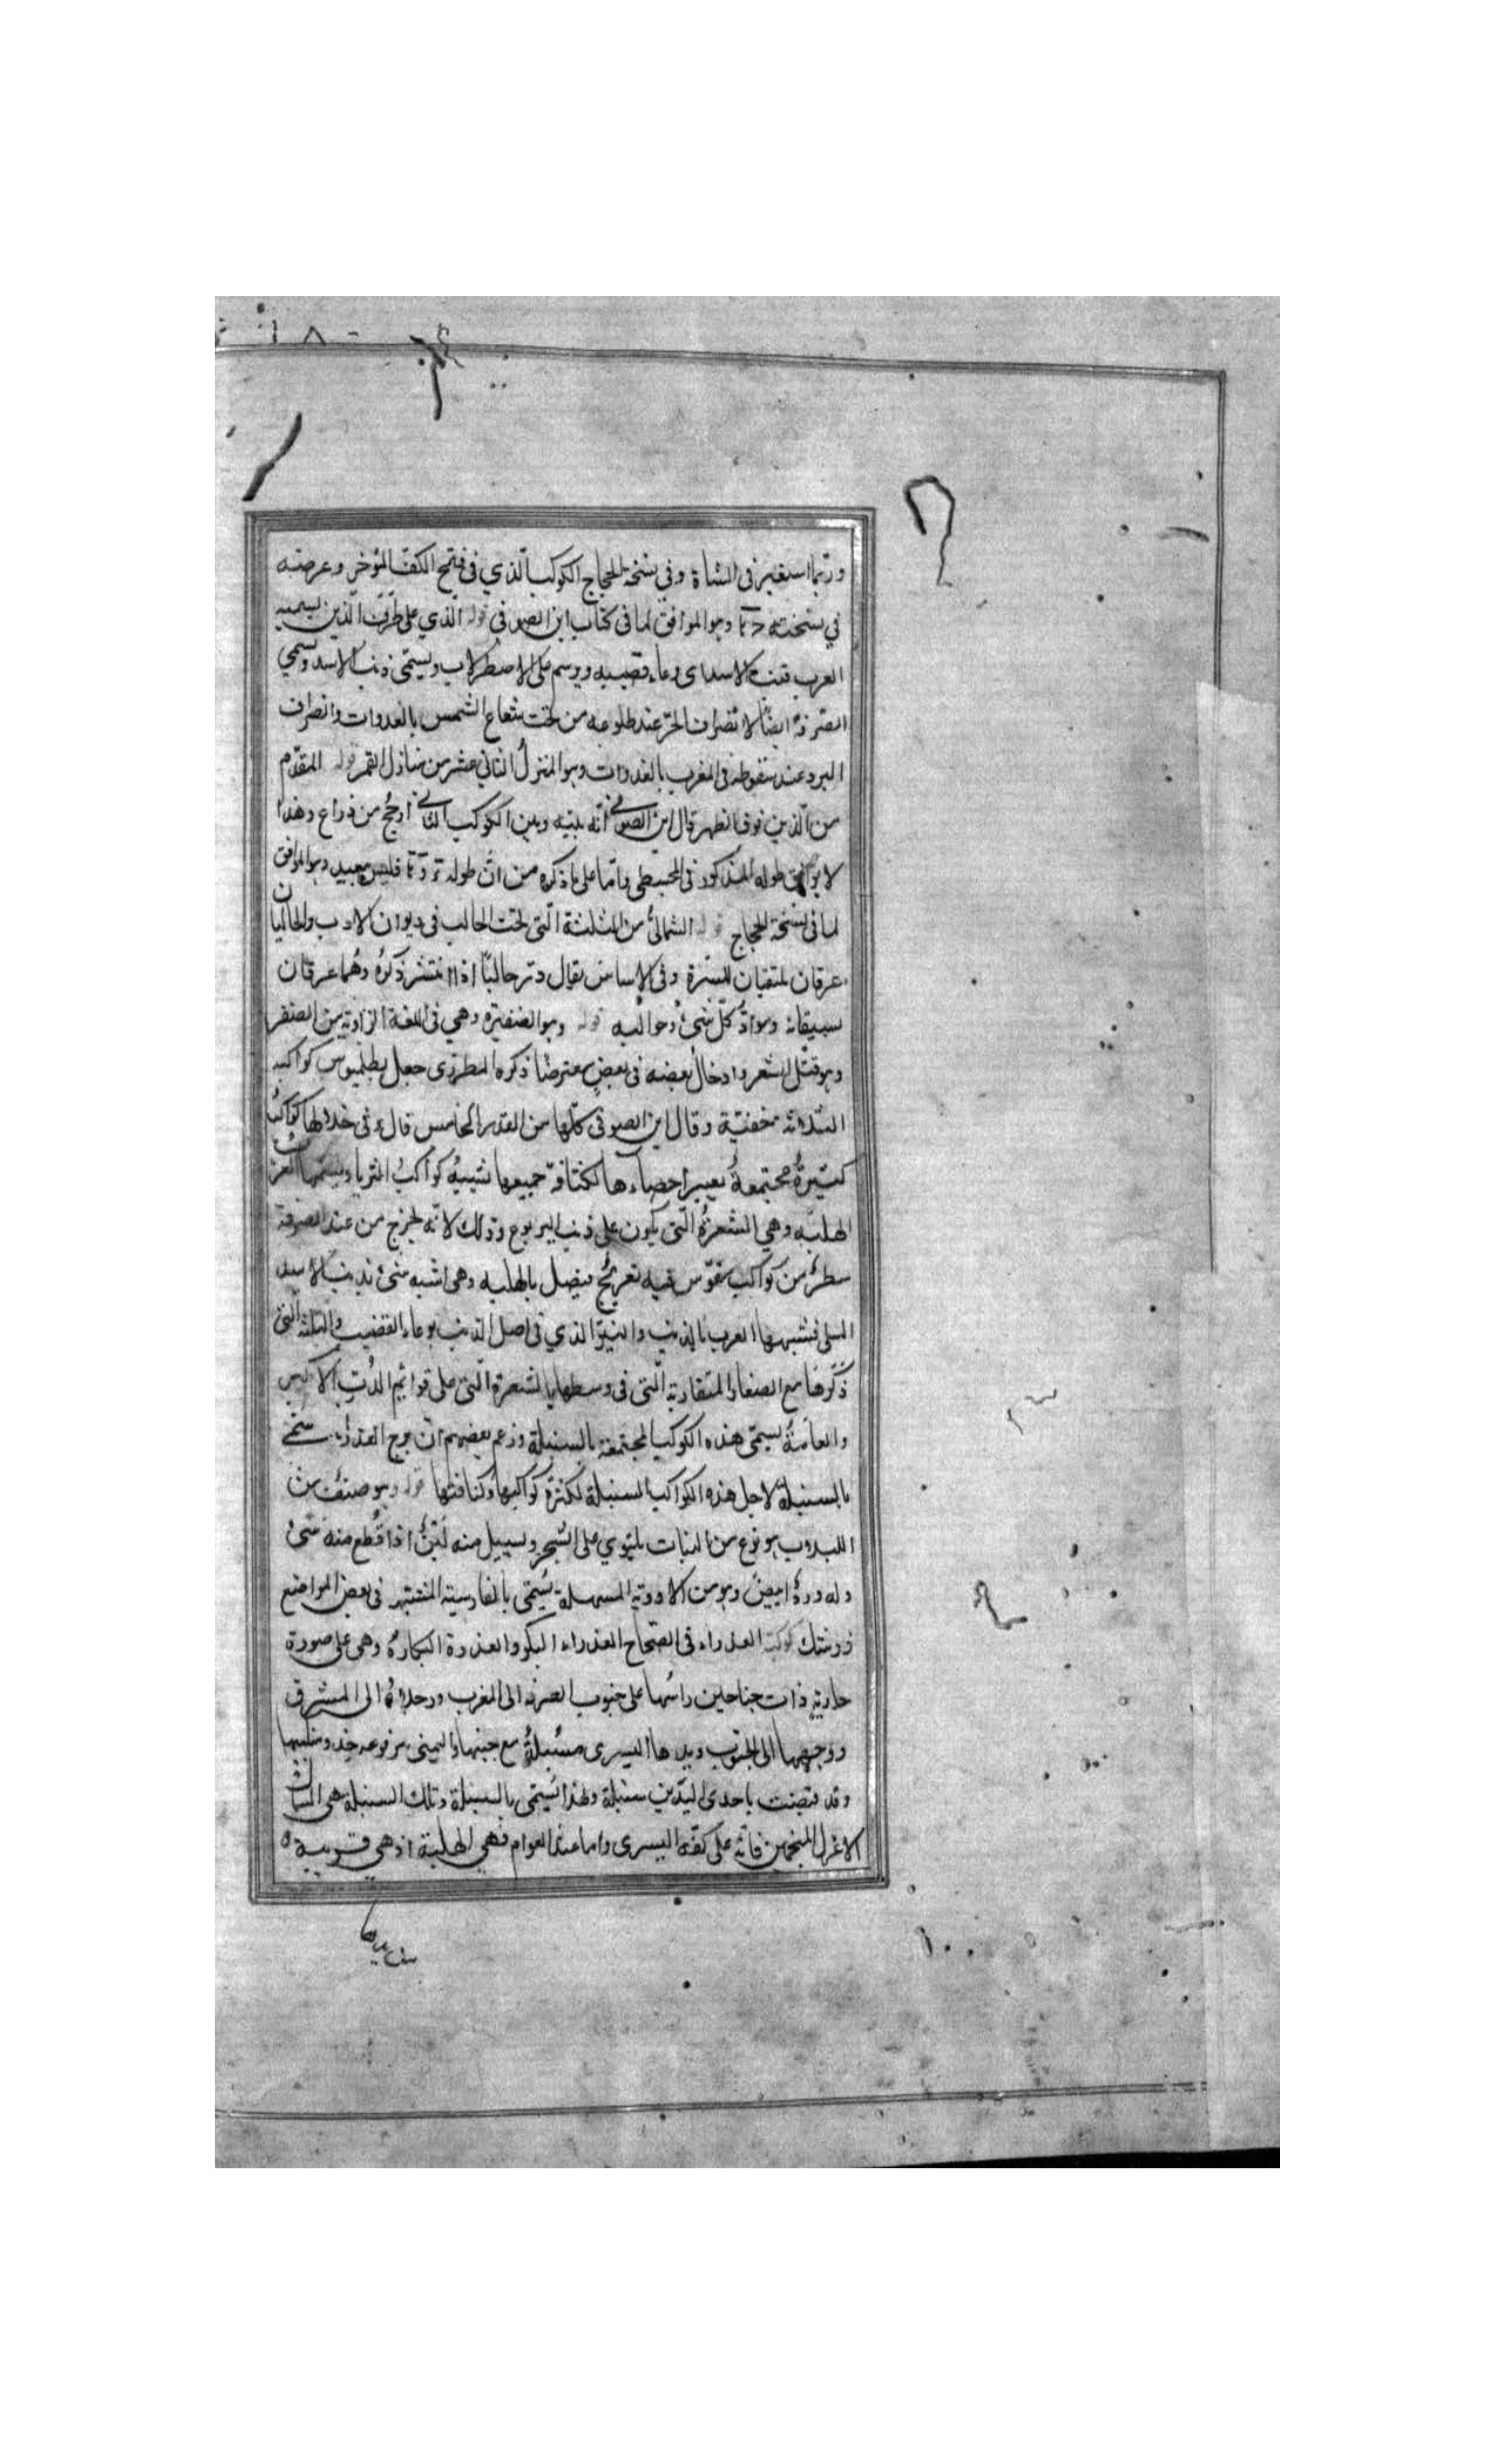 وربما استعير في الشاة وفي نسخة الحجاج الكوكب الذي في فتح الكف المؤخر وعرضه
في نسخته وهو الموافق لما في كتاب ابن الصوفي قوله الذي على طرف الذنب يسميه
العرب قنب الاسد اى وعاء قضيبه ويرسم على الاصطرلاب ويسمى ذنب الاسد ويسمى
الصرفة ايضا لانصراف الحر عند طلوعه من تحت شعاع الشمس بالغدوات وانصراف
البرد عند سقوطه في المغرب بالغدوات وهو المنزل الثاني عشر من منازل القمر قوله المقدم
من الذين فوق الظهر قال ابن الصوفي انه بينه وبين الكوكب الثاني ارجح من ذراع وهذا
لا يوافق طوله المذكور في المجسطي واما على ما ذكره من ان طوله فليس ببعيد وهو الموافق
لما في نسخة الحجاج قوله الشمالي من المثلثة التي تحت الحالب في ديوان الادب والحالبان
عرقان يكتنفان السرة وفي الاساس يقال درّ حالباه اذا انتشر ذكره وهما عرقان
يسقيانه وموادّ كل شئ وحوالبه قوله وهو الضفيرة وهي في اللغة الذوابة من الضفر
وهو فتل الشعر وادخال بعضه في بعض معترضا ذكره المطرزى جعل بطلميوس كواكبه
الثلاثة مخفية وقال ابن الصوفي كلها من القدر الخامس قال وفي خلالها كواكب
كثيرة مجتمعة يعسر احصاءها لكثافة جميعها شبيه كواكب الثريا ويسميها العرب
الهلبة وهي الشعرة التي يكون على ذنب اليربوع وذلك لانه يخرج من عند الصرفة
سطر من كواكب بتقوس فيه تعريج فيصل بالهلبة وهي اشبه شئ بذنب الاسد
المسلى فشبهها العرب بالذنب والنير الذي في اصل الذنب بوعاء القضيب والثلثة التي
ذكرها مع الصغار المتقاربة التي في وسطها بالشعرة التي على قوائم الدب الاكبر
والعامة يسمى هذه الكوكب المجتمعة بالسنبلة وزعم بعضهم ان برج العذراء سمى
بالسنبلة لاجل هذه الكواكب السنبلة لكثرة كواكبها وكثافتها قوله وهو صنف من
اللبلاب هو نوع من النبات يلتوي على الشجر ويسيل منه لبن اذا قطع منه شئ
وله ورد ابيض وهو من الادوية المسهلة يسمى بالفارسية في بعض المواضع
كوكبة العذراء في الصحاح العذراء البكر والعذرة البكارة وهي على صورة
جارية ذات جناحين راسها على جنوب الصرفة الى المغرب ورجلاها الى المشرق
ووجهها الى الجنوب ويدها اليسرى مسبلة مع جنبها واليمنى مرفوعة حذو منكبها
وقد قبضت باحدى اليدين سنبلة ولهذا يسمى بالسنبلة وتلك السنبلة هي السماك
الاعزل المنجمين فانه على كفه اليسرى واما عند العوام فهي الهلبة اذ هي قريبة
من يدها
١٠٠